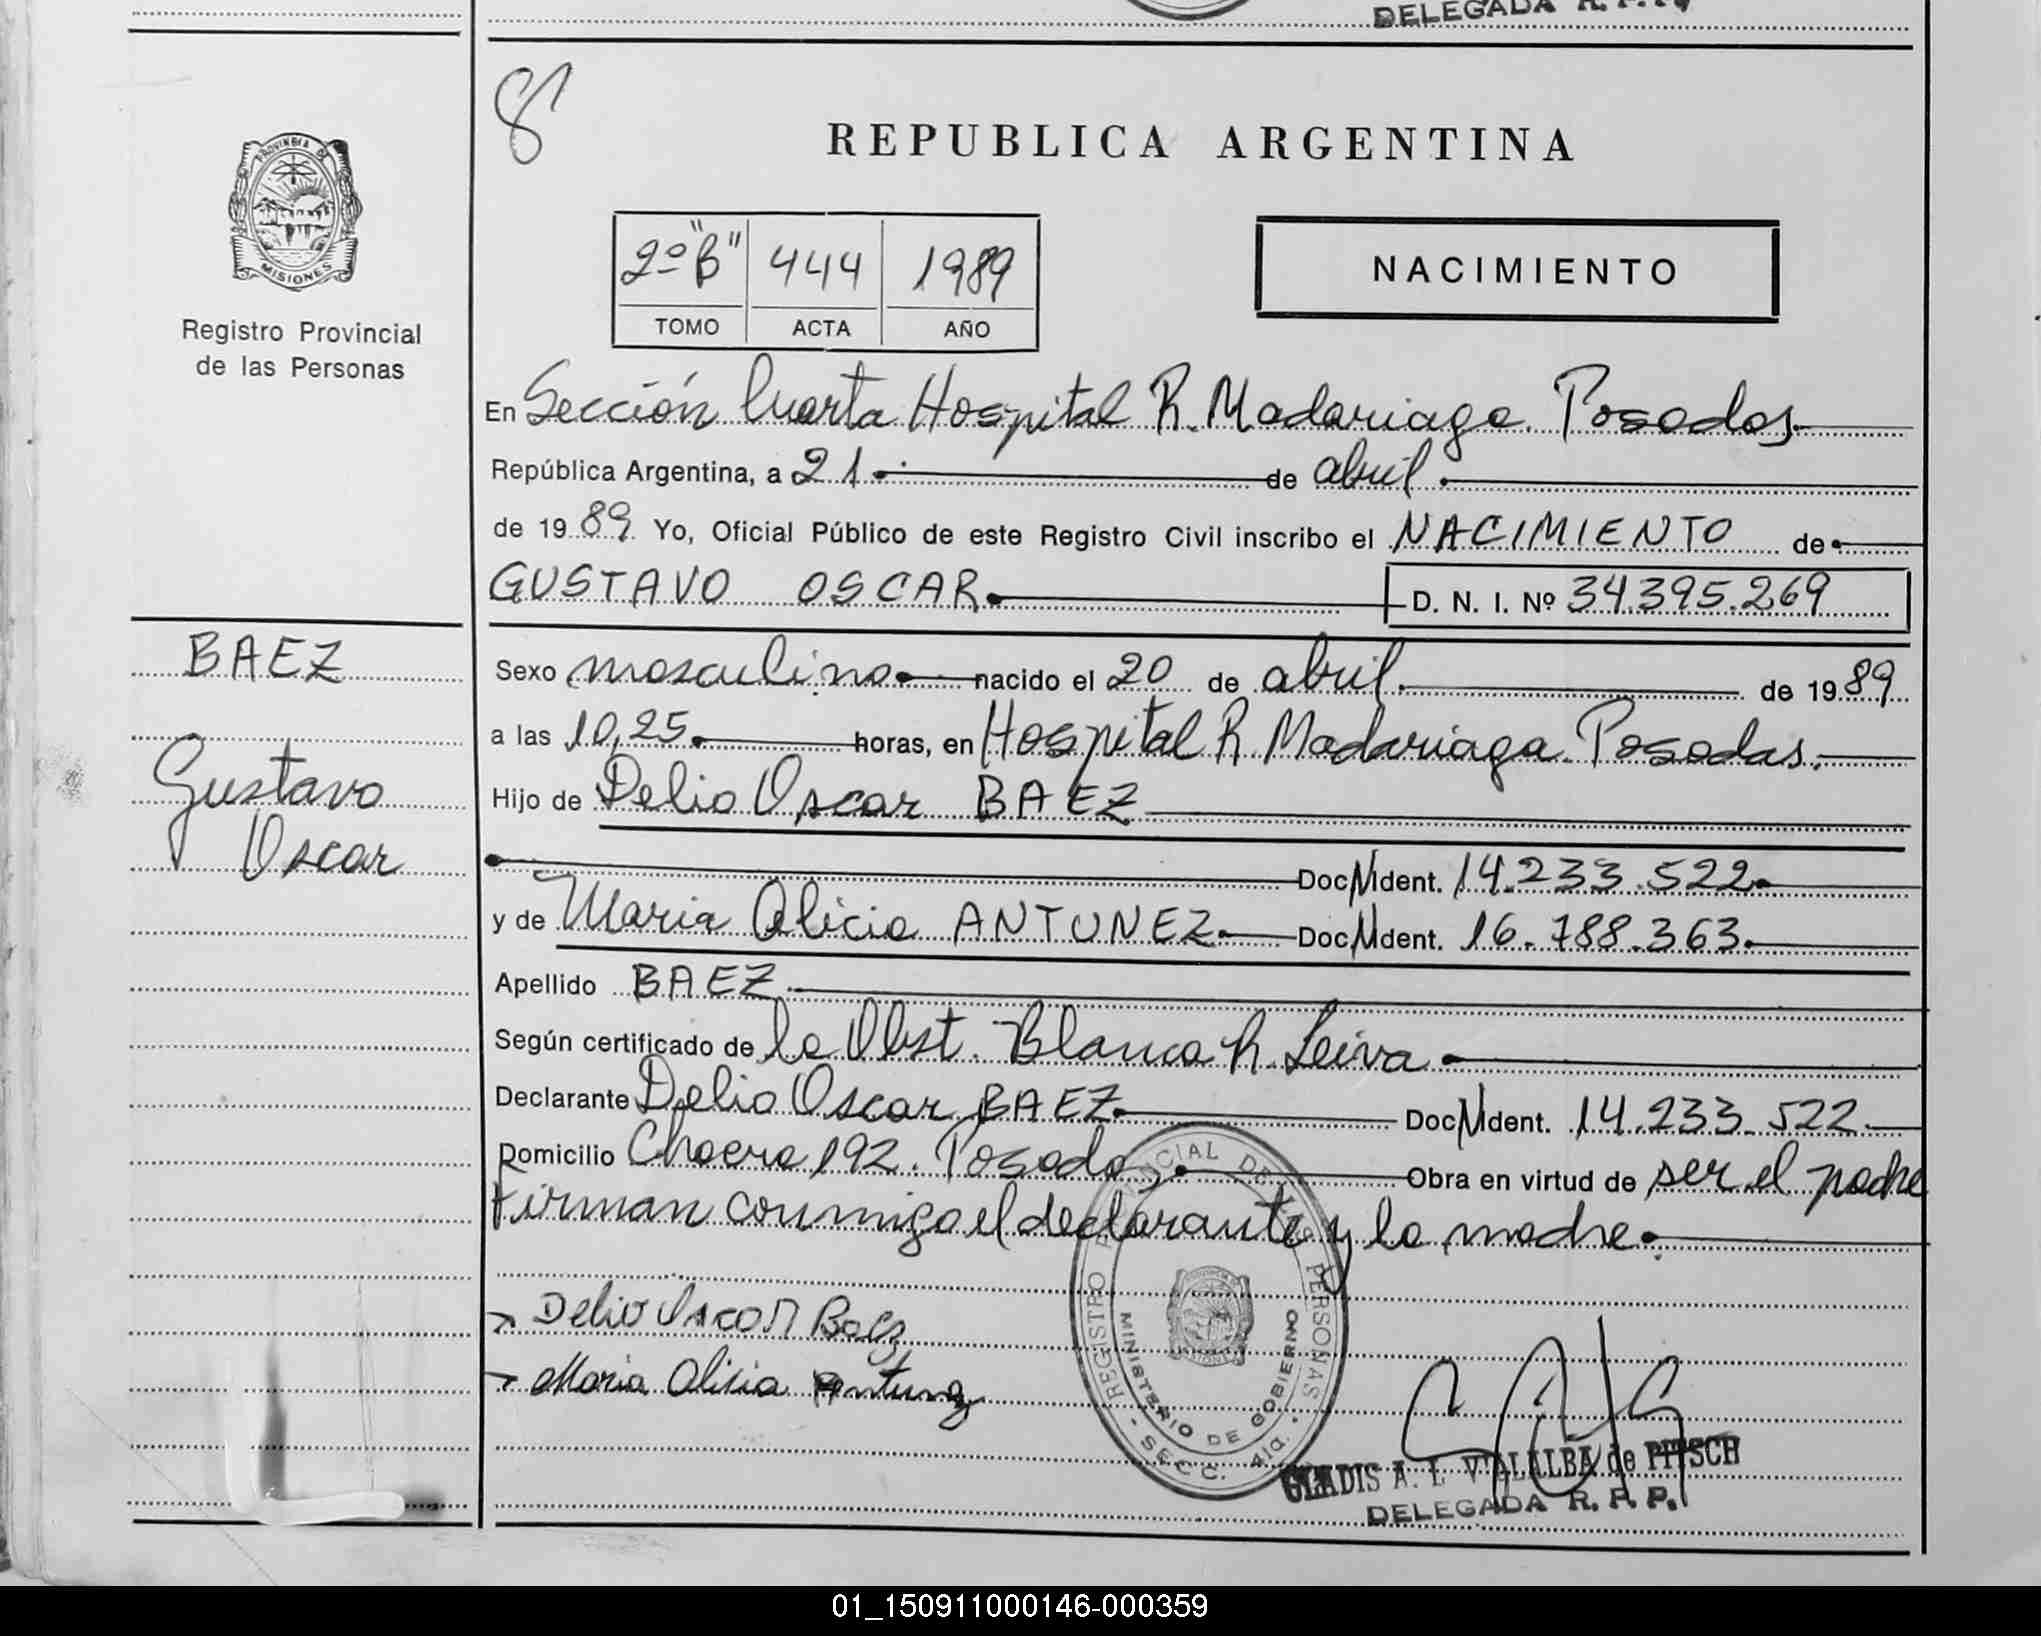 DELEGADA R. P. P.
8
PROVINCIA DE
MISIONES
Registro Provincial
de las Personas
REPUBLICA ARGENTINA
2º "B" 444 1989
TOMO ACTA AÑO
NACIMIENTO
En Sección Cuarta Hospital R. Madariaga. Posadas
República Argentina, a 21 de abril
de 1989 Yo, Oficial Público de este Registro Civil inscribo el NACIMIENTO de
GUSTAVO OSCAR D. N. I. Nº 34.395.269
BAEZ
Gustavo
Oscar
Sexo masculino nacido el 20 de abril de 1989
a las 10,25 horas, en Hospital R. Madariaga. Posadas.
Hijo de Delio Oscar BAEZ
Doc. N Ident. 14.233.522
y de Maria Alicia ANTUNEZ Doc. N Ident. 16.788.363
Apellido BAEZ
Según certificado de la Obst. Blanca R. Leiva
Declarante Delio Oscar BAEZ Doc. N Ident. 14.233.522
Domicilio Chacra 192. Posadas Obra en virtud de ser el padre
Firman conmigo el declarante y la madre.
Delio Oscar Baez
Maria Alisia Antunez
REGISTRO PROVINCIAL DE LAS PERSONAS
MINISTERIO DE GOBIERNO
- SECC. 4ta. -
GLADIS A. L. VILLALBA de PITSCH
DELEGADA R. P. P.
01_150911000146-000359